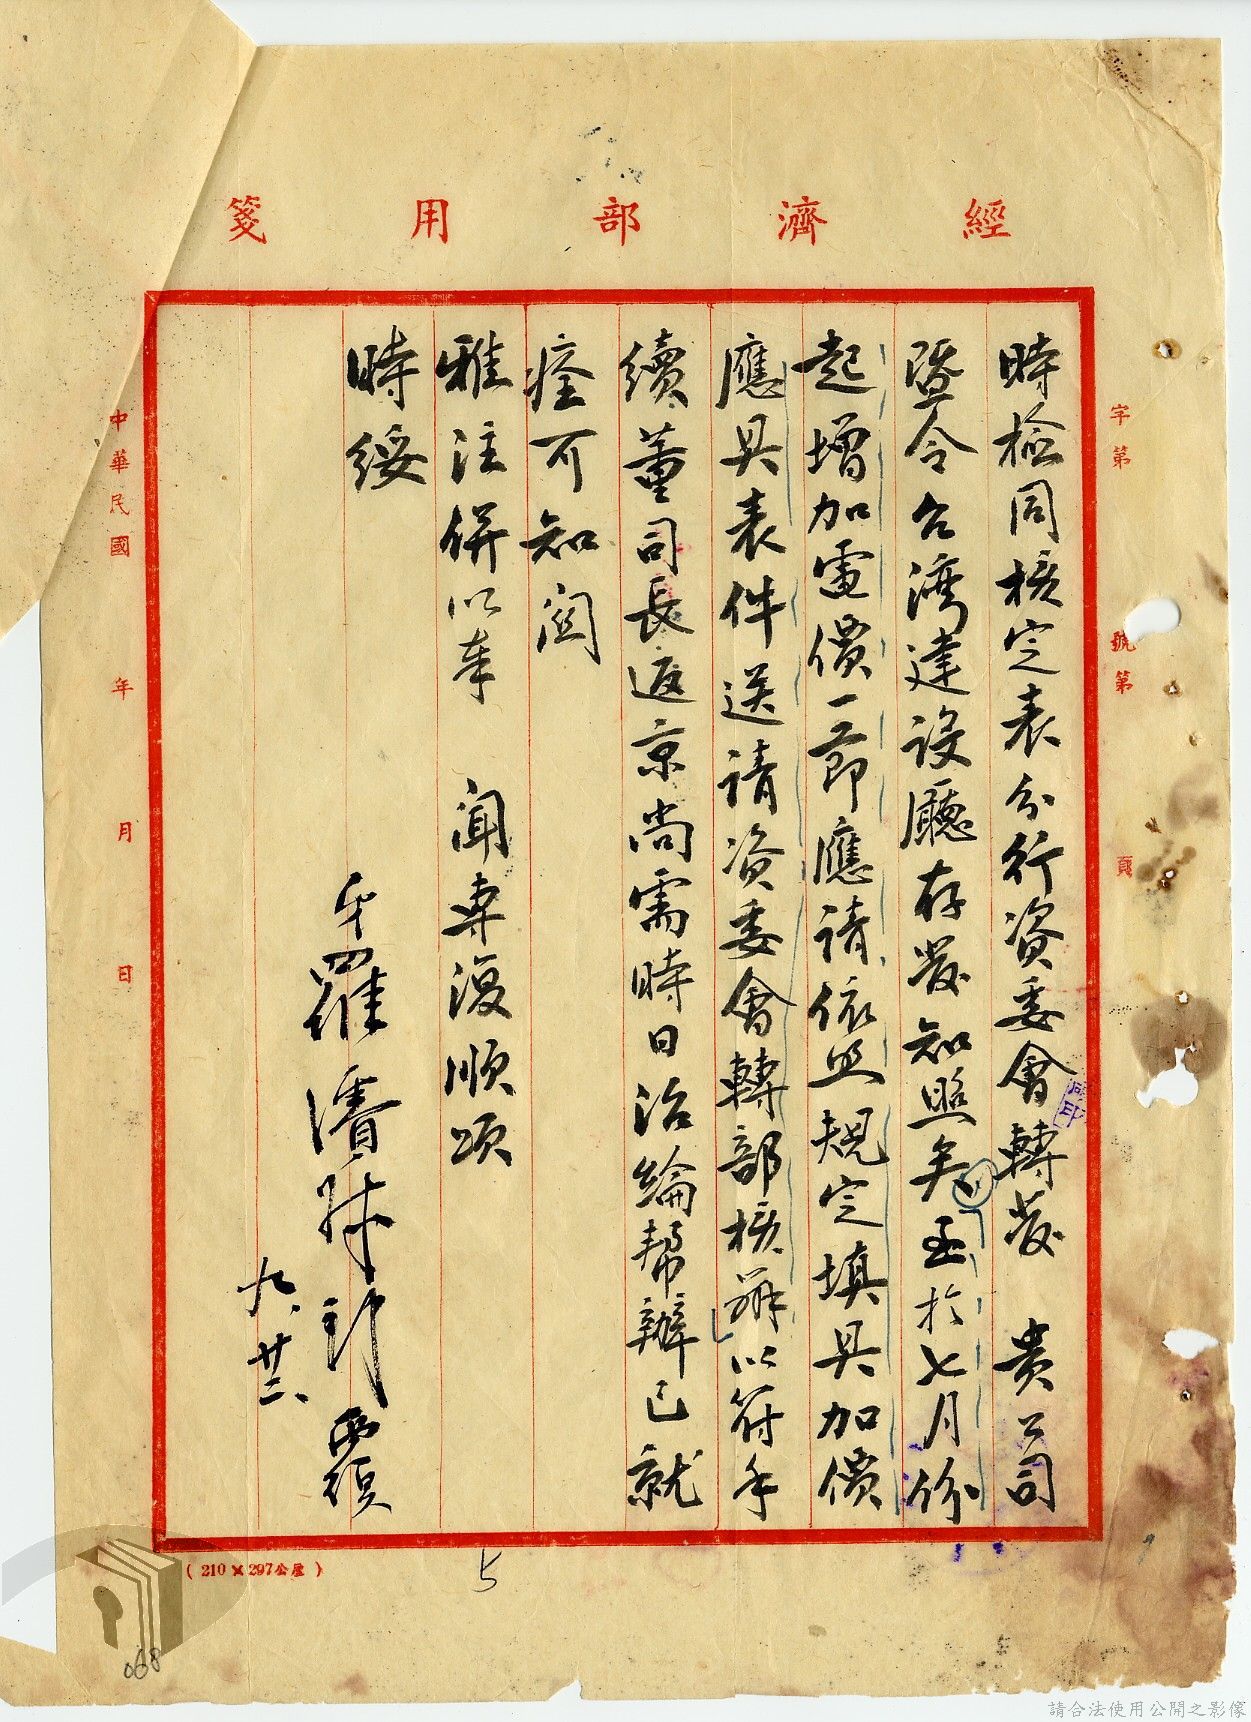 經濟部用箋
字第 號第 頁
時檢同核定表分行資委會轉發 貴公司
暨令台灣建設廳存發知照矣至於七月份
起增加電價一節應請依照規定填具加價
應具表件送請資委會轉部核辦以符手
續董司長返京尚需時日治綸幫辦已就
痊可知關
雅注併以奉 聞專復順頌
時綏
弟羅濟 覆
九、廿二、
中華民國 年 月 日
(210×297公厘)
5
068
請合法使用公開之影像